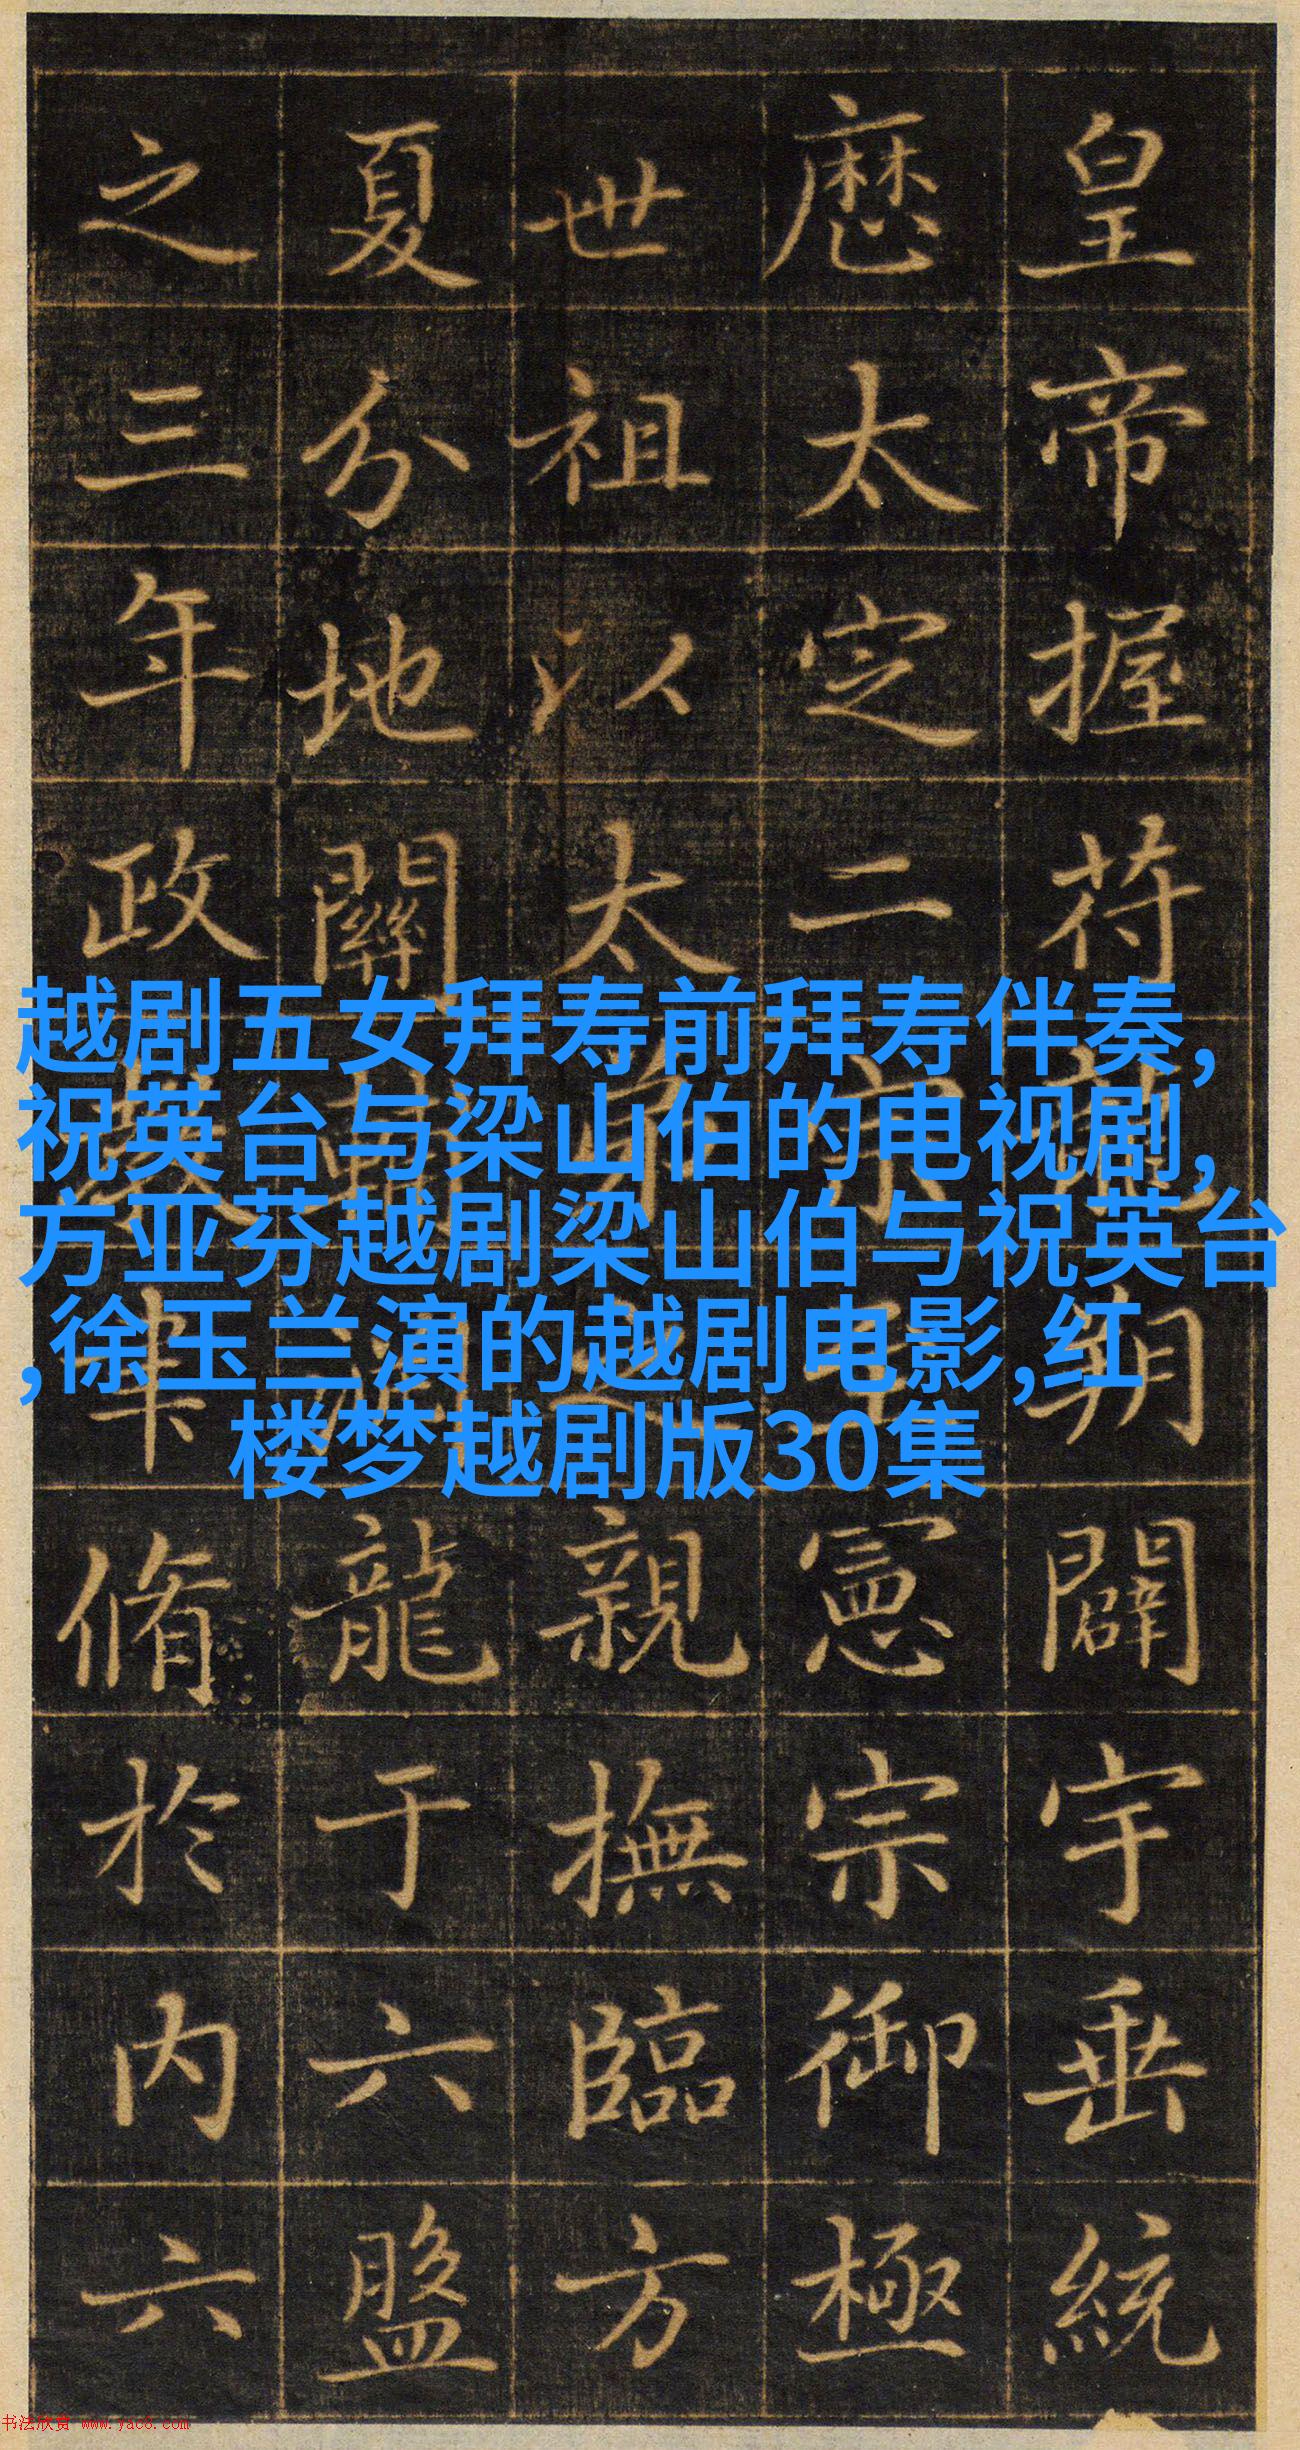 皇帝握符朔闢宇垂統
厯太定二宗憲宗御極
世祖以太弟之親撫臨方
夏分地關龍于六盤
之三年政脩於内六
越剧五女拜寿前拜寿伴奏,
祝英台与梁山伯的电视剧,
方亚芬越剧梁山伯与祝英台
,徐玉兰演的越剧电影,红
楼梦越剧版30集
书法欣赏 www.yac8.com